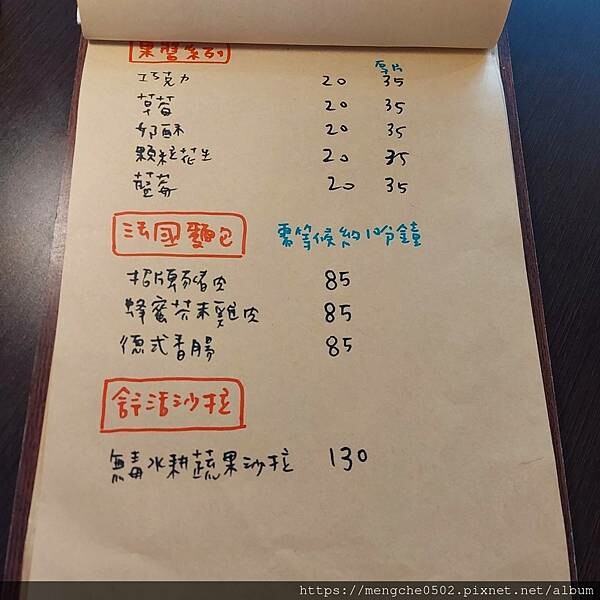 果醬系列
厚片
巧克力 20 35
草莓 20 35
奶酥 20 35
顆粒花生 20 35
藍莓 20 35
法國麵包 需等候約10分鐘
招牌豬肉 85
蜂蜜芥末雞肉 85
德式香腸 85
舒活沙拉
無毒水耕蔬果沙拉 130
https://mengche0502.pixnet.net/album